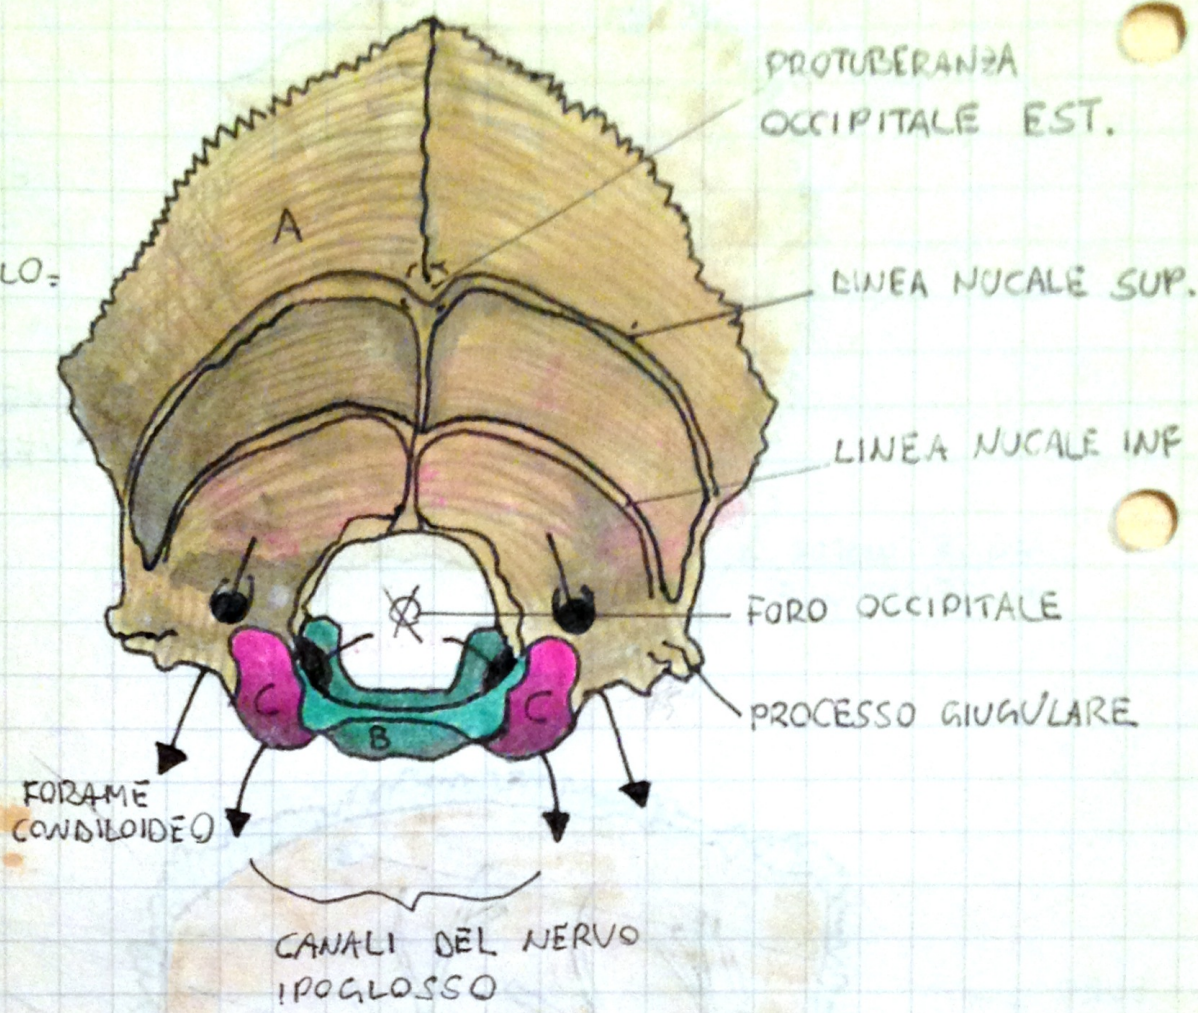 PROTUBERANZA
OCCIPITALE EST.
A
LO=
LINEA NUCALE SUP.
LINEA NUCALE INF
FORO OCCIPITALE
C
C
B
PROCESSO GIUGULARE
FORAME
CONDILOIDEO
CANALI DEL NERVO
IPOGLOSSO